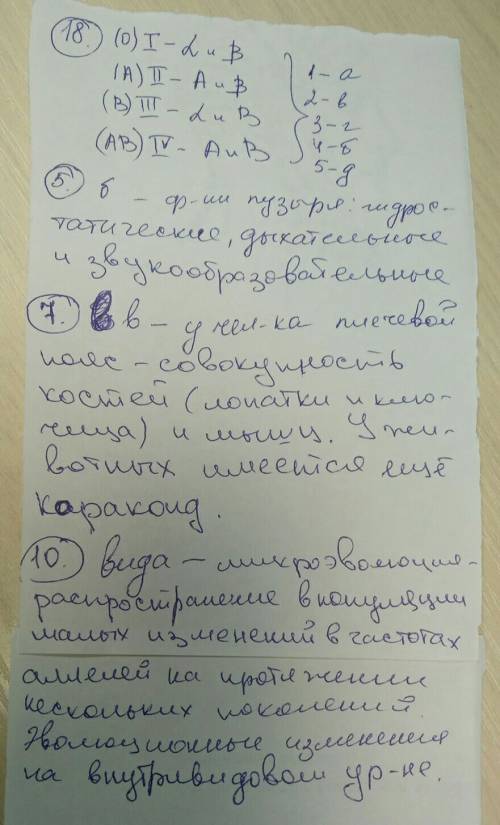 18. (0) I – α и β
(A) II – А и β
(B) III – α и В
(AB) IV – А и В
1 – а
2 – в
3 – г
4 – б
5 – д
5. б – ф-ии пузыря: гидрос-
татические, дыхательные
и звукообразовательные
7. в – у чел-ка плечевой
пояс – совокупность
костей (лопатки и клю-
чица) и мышц. У жи-
вотных имеется ещё
каракоид.
10. вида – микроэволюция –
распространение в популяции
малых изменений в частотах
аллелей на протяжении
нескольких поколений.
Эволюционные изменения
на внутривидовом ур-не.